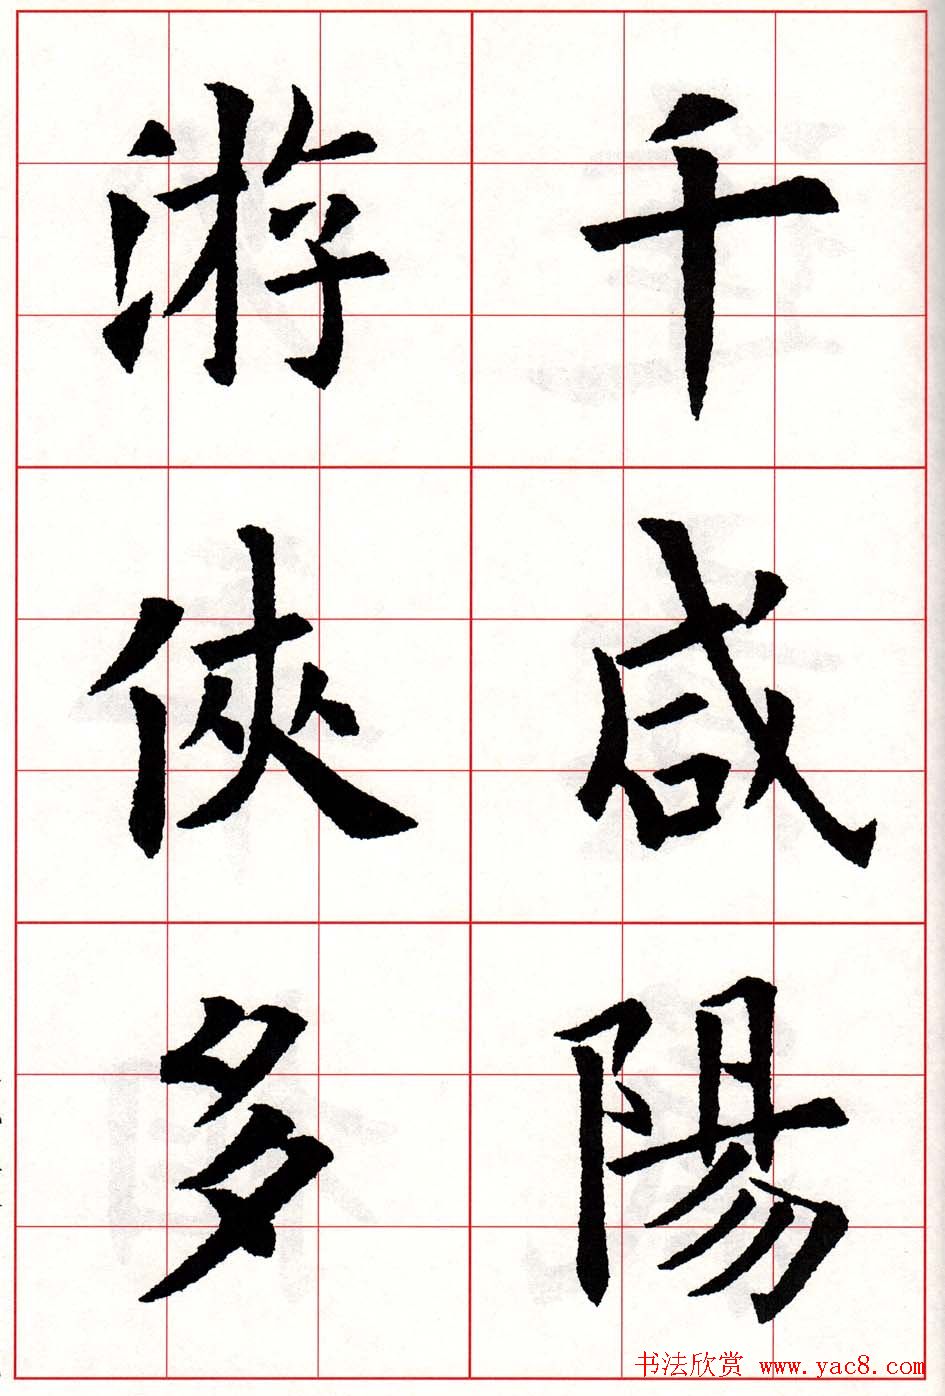 千咸陽
游俠多
书法欣赏 www.yac8.com